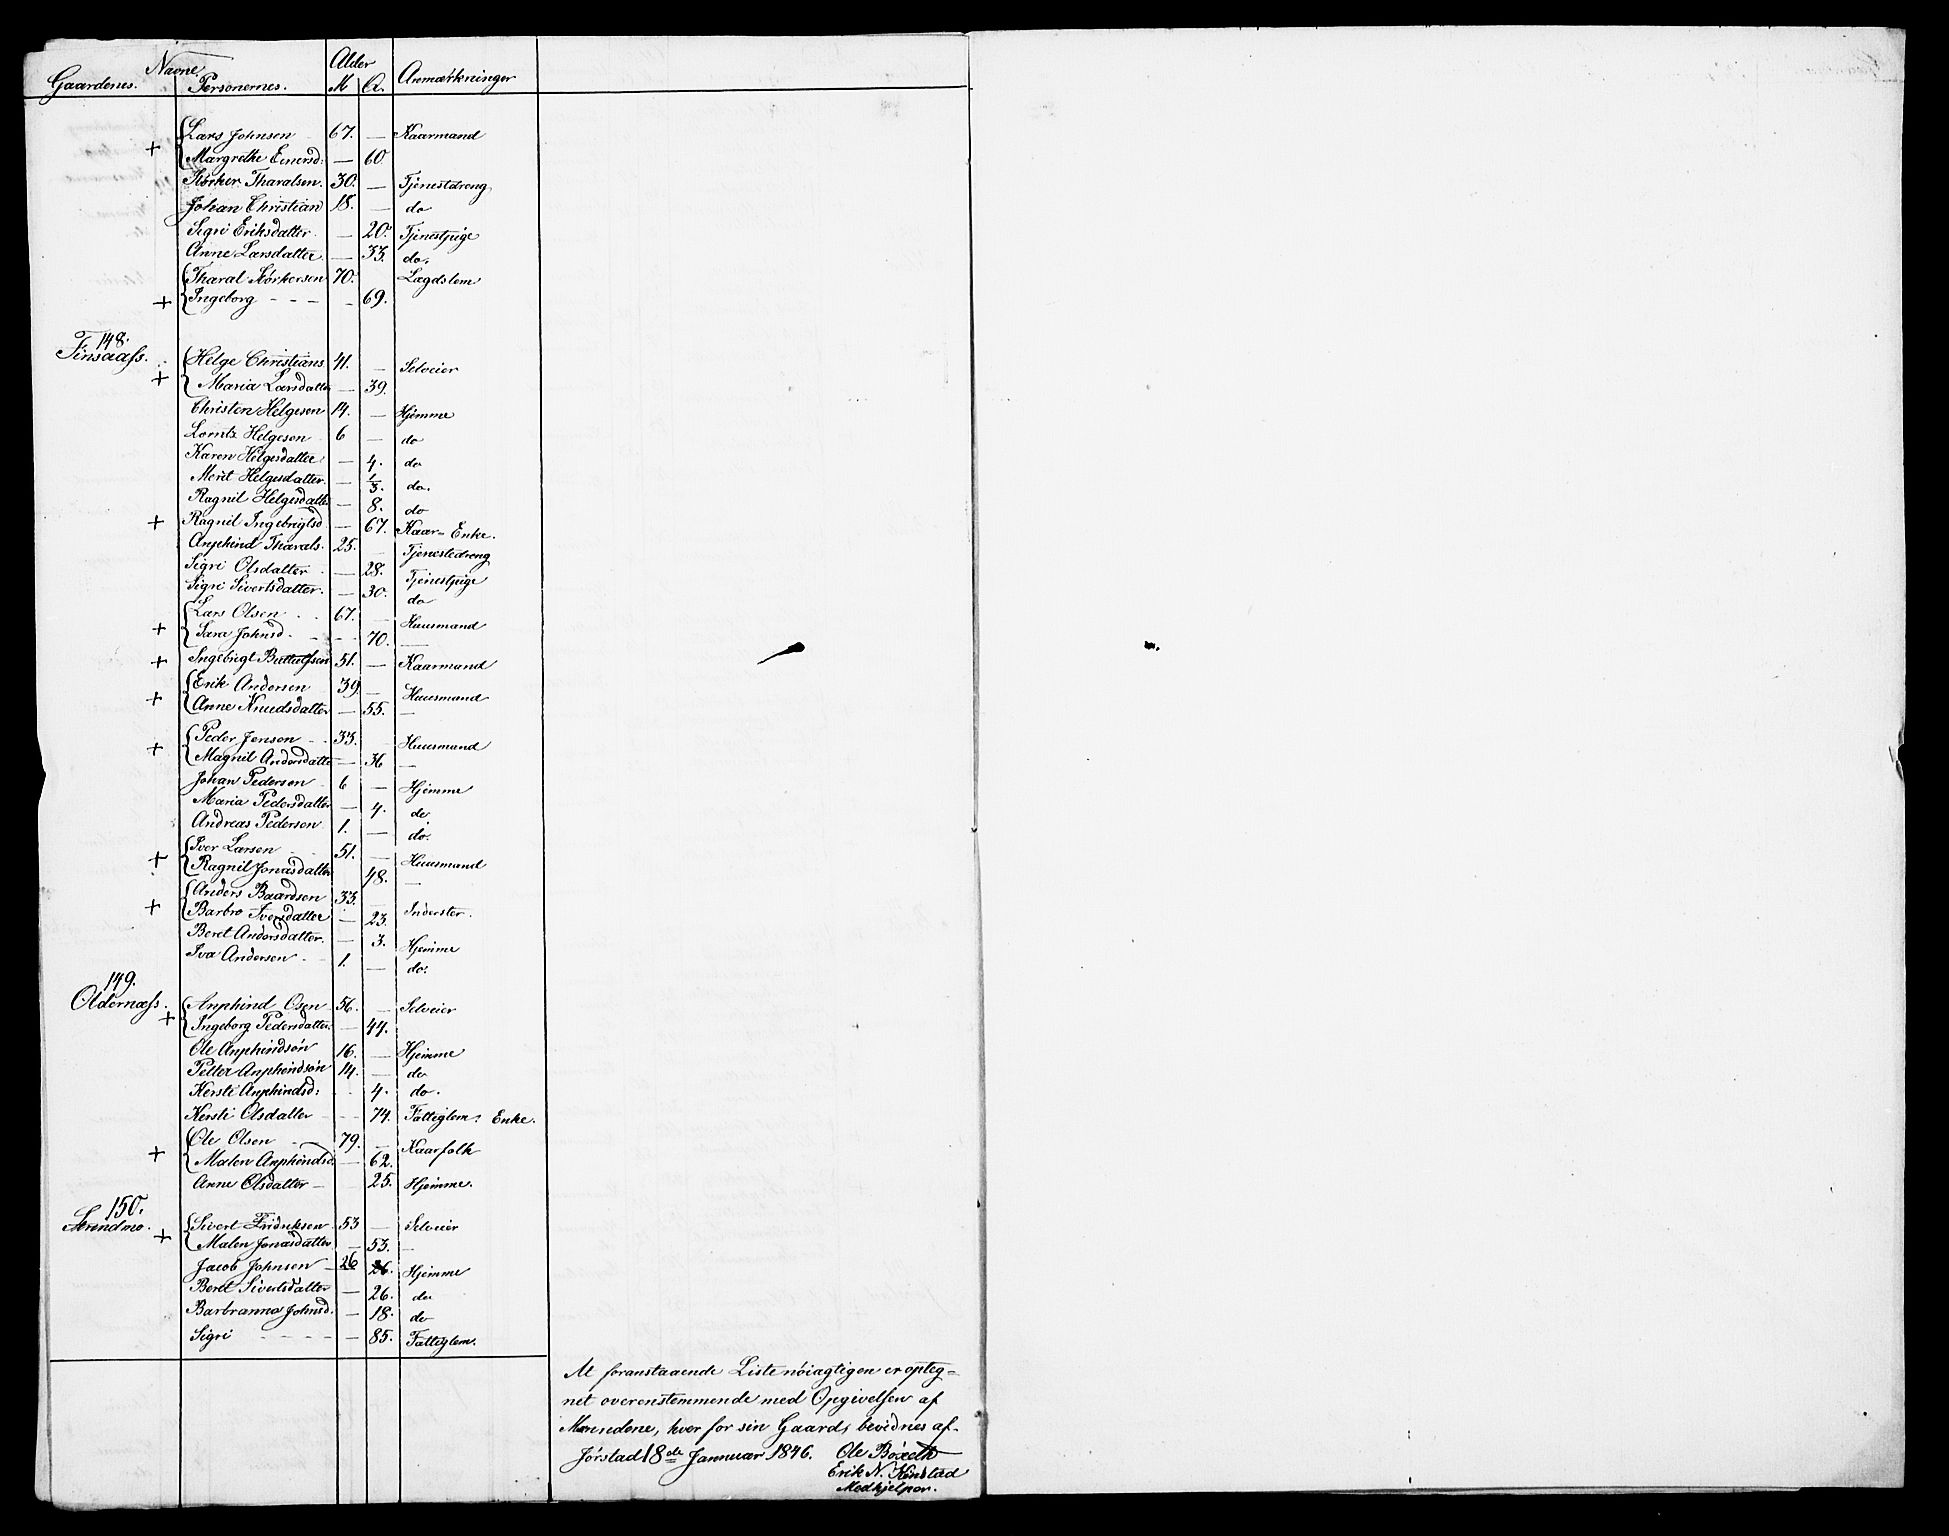 Navne. Alder
Gaardenes. Personernes. M Q. Anmærkninger
Lars Johnsen 67. — Kaarmand
+ Margrethe Einersd: — 60.
Størker Tharalsen. 30. — Tjenestdreng
Johan Christian 18. — do
Sigri Eriksdatter — 20. Tjenestpige
Anne Larsdatter — 33. do.
Tharal Størkersen 70. Lægdslem
+ Ingeborg - - - — 69.
148.
Finsaass. Helge Christians. 41. — Selveier
+ Maria Larsdatter — 39.
Christen Helgesen 14. — Hjemme
Lorntz Helgesen 6 — do
Karen Helgesdatter — 4. do
Merit Helgesdatter. — 1/3. do.
Ragnil Helgesdatter — 8. do
+ Ragnil Ingebrigtsd — 67. Kaar= Enke.
Anphind Tharals. 25. — Tjenestedreng
Sigri Olsdatter — 28. Tjenestpige
Sigri Sivertsdatter. — 30. do
Lars Olsen 67. — Huusmand
+ Sara Johnsd. - - 70. —
+ Ingebrigt Buttulfsen 51. — Kaarmand
Erik Andersen 39. — Huusmand
+ Anne Knudsdatter — 55. —
Peder Jensen 33. — Huusmand
+ Magnil Andersdatter — 36 —
Johan Pedersen 6 — Hjemme
Maria Pedersdatter — 4. do
Andreas Pedersen 1. — do.
Iver Larsen 51. — Huusmand
+ Ragnil Jonasdatter 48. —
Anders Baardsen 33. — Inderster.
+ Barbro Iversdatter — 23.
Beret Andersdatter. — 3. Hjemme
Iva Andersen 1. — do.
149.
Oldernæss. Anphind Osen 56. — Selveier
+ Ingeborg Pedersdatter. — 44.
Ole Anphindsøn 16. — Hjemme
Petter Anphindsøn 14. — do
Kersti Anphindsd: - - 4. do.
Kersti Olsdatter - - 74. Fattiglem. Enke.
Ole Olsen 79. — Kaarfolk
+ Malen Anphindsd. — 62.
Anne Olsdatter — 25. Hjemme.
150.
Strindmo. Sivert Fridriksen 53 — Selveier
+ Malen Jonasdatter — 53. —
Jacob Johnsen — 26 26. Hjemme
Beret Sivertsdatter — 26. do
Barbranna Johnsd. — 18. do
Sigri - - - - — 85. Fattiglem.
At foranstaaende Liste nöiagtigen er opteg=
net overenstemmende med Opgivelsen af
Mændene, hver for sin Gaard, bevidnes af.
Jörstad 18de Januar 1846. Ole Böxeth
Erik N. Kinstad
Medhjelper.